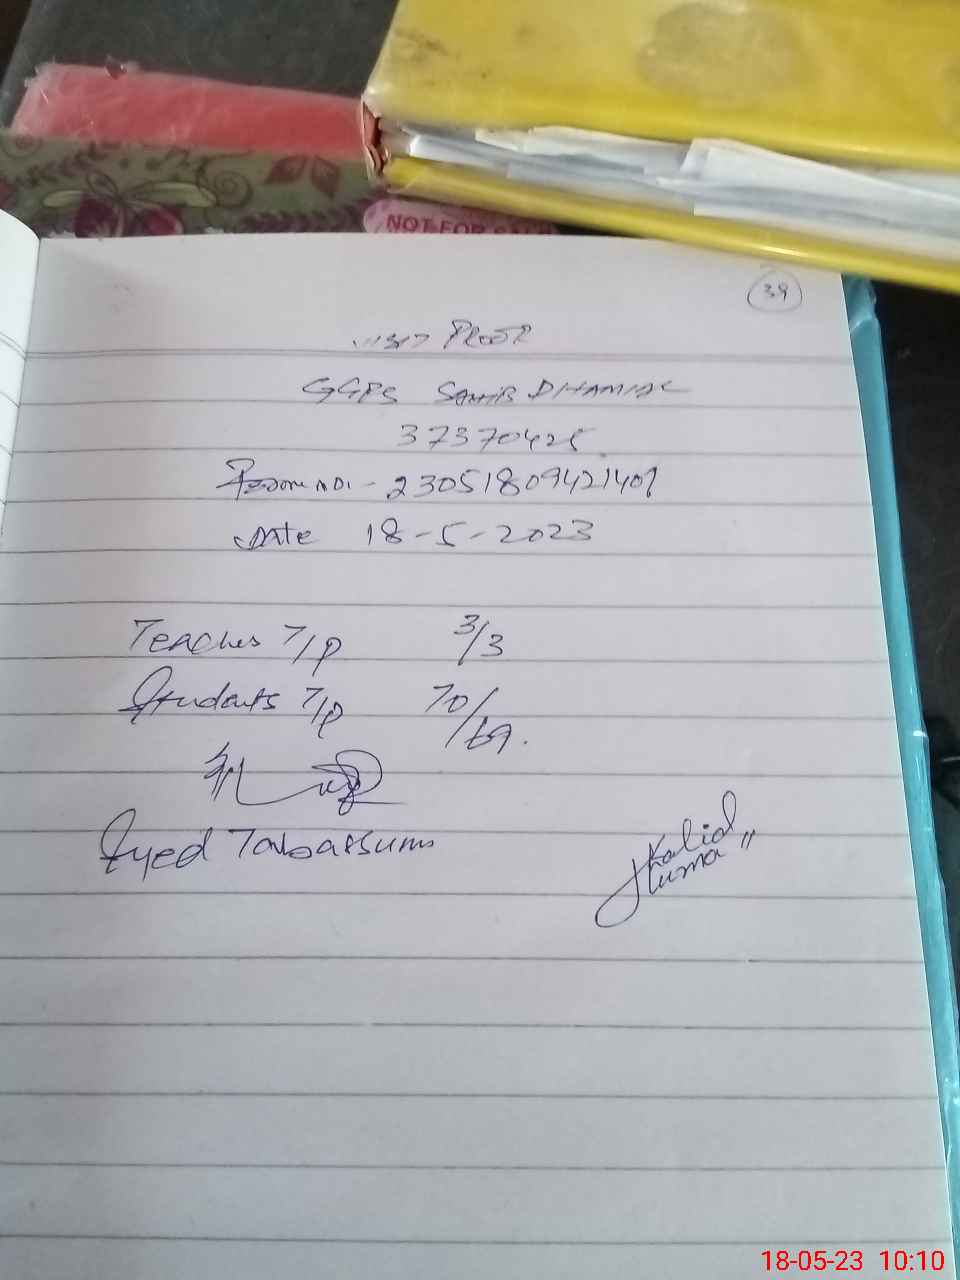 NOT FOR SALE
39
Visit Proof
GGPS Sahib Dhamial
37370425
no - 23051809421401
Date 18-5-2023
Teaches T/P 3/3
Students T/P 70/69.
Syed Tabassum
Khalid
uma
18-05-23 10:10